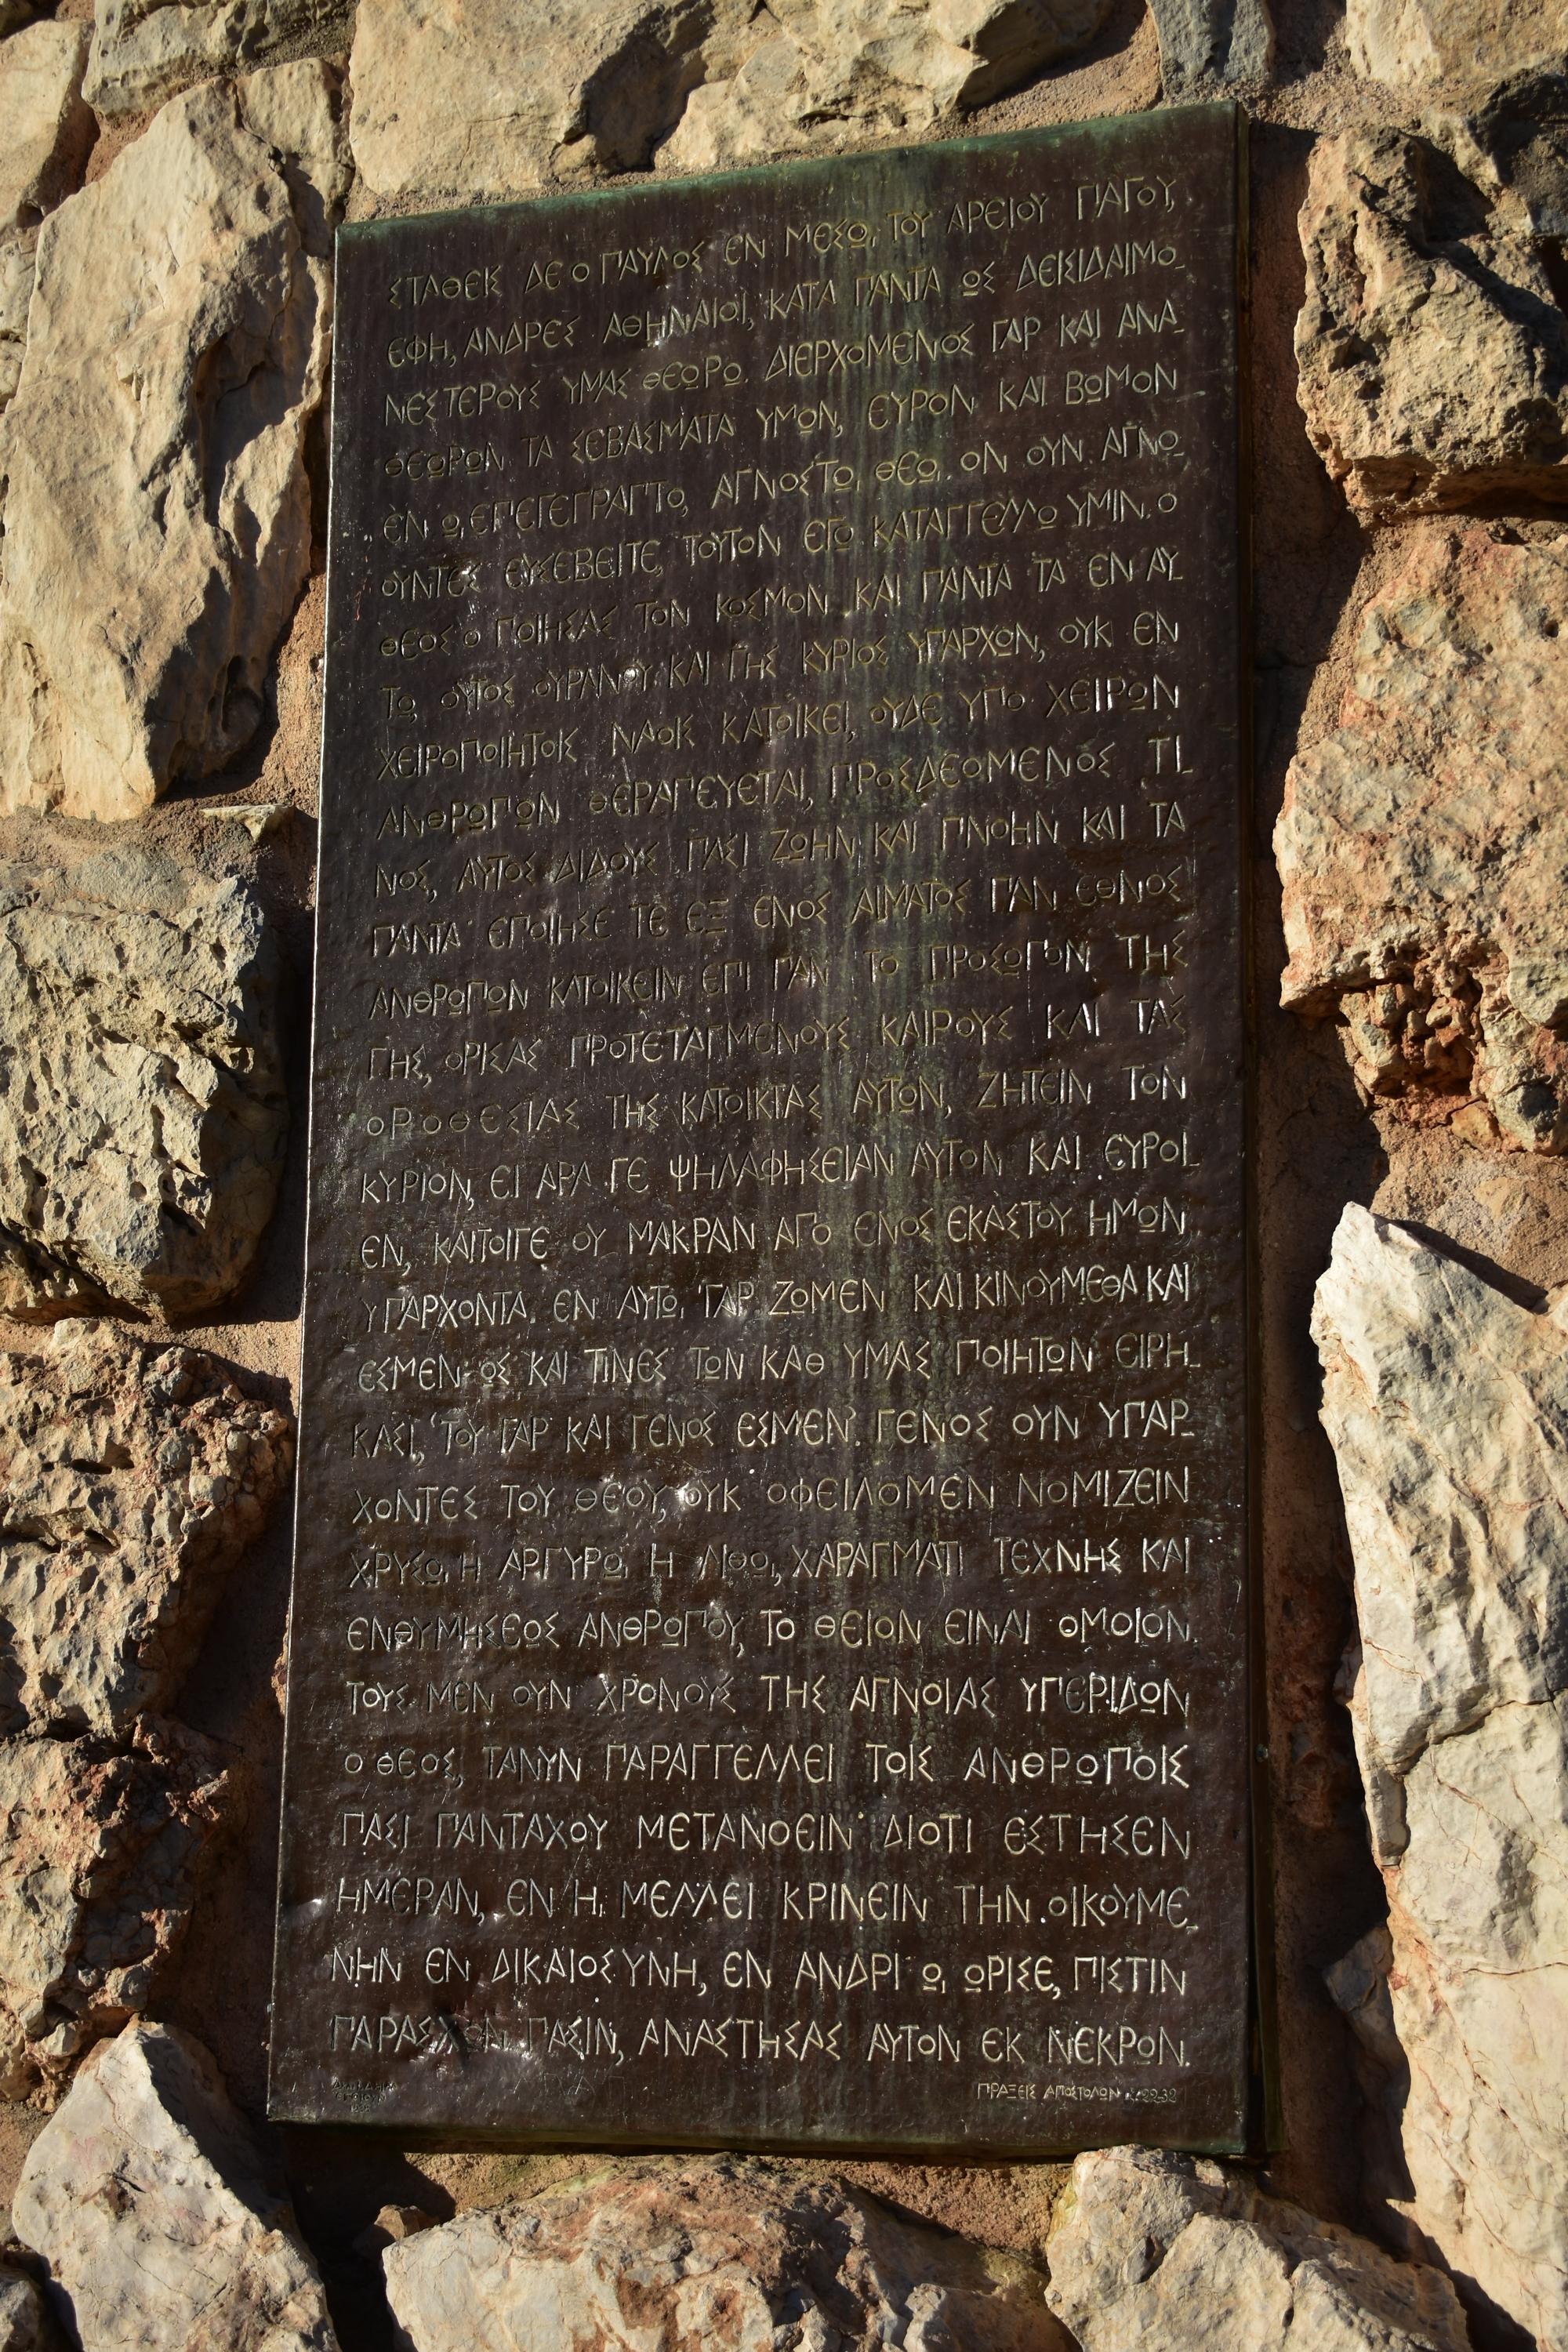 ΣΤΑΘΕΙΣ ΔΕ Ο ΠΑΥΛΟΣ ΕΝ ΜΕΣΩ, ΤΟΥ ΑΡΕΙΟΥ ΠΑΓΟΥ,
ΕΦΗ, ΑΝΔΡΕΣ ΑΘΗΝΑΙΟΙ, ΚΑΤΑ ΠΑΝΤΑ ΩΣ ΔΕΙΣΙΔΑΙΜΟ-
ΝΕΣΤΕΡΟΥΣ ΥΜΑΣ ΘΕΩΡΩ. ΔΙΕΡΧΟΜΕΝΟΣ ΓΑΡ ΚΑΙ ΑΝΑ-
ΘΕΩΡΩΝ ΤΑ ΣΕΒΑΣΜΑΤΑ ΥΜΩΝ, ΕΥΡΟΝ ΚΑΙ ΒΩΜΟΝ
ΕΝ Ω, ΕΠΕΓΕΓΡΑΠΤΟ, ΑΓΝΩΣΤΩ, ΘΕΩ,. ΟΝ ΟΥΝ ΑΓΝΟ-
ΟΥΝΤΕΣ ΕΥΣΕΒΕΙΤΕ, ΤΟΥΤΟΝ ΕΓΩ ΚΑΤΑΓΓΕΛΛΩ ΥΜΙΝ. Ο
ΘΕΟΣ Ο ΠΟΙΗΣΑΣ ΤΟΝ ΚΟΣΜΟΝ ΚΑΙ ΠΑΝΤΑ ΤΑ ΕΝ ΑΥ-
ΤΩ, ΟΥΤΟΣ ΟΥΡΑΝΟΥ ΚΑΙ ΓΗΣ ΚΥΡΙΟΣ ΥΠΑΡΧΩΝ, ΟΥΚ ΕΝ
ΧΕΙΡΟΠΟΙΗΤΟΙΣ ΝΑΟΙΣ ΚΑΤΟΙΚΕΙ, ΟΥΔΕ ΥΠΟ ΧΕΙΡΩΝ
ΑΝΘΡΩΠΩΝ ΘΕΡΑΠΕΥΕΤΑΙ, ΠΡΟΣΔΕΟΜΕΝΟΣ ΤΙ-
ΝΟΣ, ΑΥΤΟΣ ΔΙΔΟΥΣ ΠΑΣΙ ΖΩΗΝ ΚΑΙ ΠΝΟΗΝ ΚΑΙ ΤΑ
ΠΑΝΤΑ ΕΠΟΙΗΣΕ ΤΕ ΕΞ ΕΝΟΣ ΑΙΜΑΤΟΣ ΠΑΝ ΕΘΝΟΣ
ΑΝΘΡΩΠΩΝ ΚΑΤΟΙΚΕΙΝ ΕΠΙ ΠΑΝ ΤΟ ΠΡΟΣΩΠΟΝ ΤΗΣ
ΓΗΣ, ΟΡΙΣΑΣ ΠΡΟΤΕΤΑΓΜΕΝΟΥΣ ΚΑΙΡΟΥΣ ΚΑΙ ΤΑΣ
ΟΡΟΘΕΣΙΑΣ ΤΗΣ ΚΑΤΟΙΚΙΑΣ ΑΥΤΩΝ, ΖΗΤΕΙΝ ΤΟΝ
ΚΥΡΙΟΝ, ΕΙ ΑΡΑ ΓΕ ΨΗΛΑΦΗΣΕΙΑΝ ΑΥΤΟΝ ΚΑΙ ΕΥΡΟΙ-
ΕΝ, ΚΑΙΤΟΙΓΕ ΟΥ ΜΑΚΡΑΝ ΑΠΟ ΕΝΟΣ ΕΚΑΣΤΟΥ ΗΜΩΝ
ΥΠΑΡΧΟΝΤΑ. ΕΝ ΑΥΤΩ, ΓΑΡ ΖΩΜΕΝ ΚΑΙ ΚΙΝΟΥΜΕΘΑ ΚΑΙ
ΕΣΜΕΝ· ΩΣ ΚΑΙ ΤΙΝΕΣ ΤΩΝ ΚΑΘ ΥΜΑΣ ΠΟΙΗΤΩΝ ΕΙΡΗ-
ΚΑΣΙ, 'ΤΟΥ ΓΑΡ ΚΑΙ ΓΕΝΟΣ ΕΣΜΕΝ'. ΓΕΝΟΣ ΟΥΝ ΥΠΑΡ-
ΧΟΝΤΕΣ ΤΟΥ ΘΕΟΥ, ΟΥΚ ΟΦΕΙΛΟΜΕΝ ΝΟΜΙΖΕΙΝ
ΧΡΥΣΩ, Η ΑΡΓΥΡΩ, Η ΛΙΘΩ, ΧΑΡΑΓΜΑΤΙ ΤΕΧΝΗΣ ΚΑΙ
ΕΝΘΥΜΗΣΕΩΣ ΑΝΘΡΩΠΟΥ, ΤΟ ΘΕΙΟΝ ΕΙΝΑΙ ΟΜΟΙΟΝ.
ΤΟΥΣ ΜΕΝ ΟΥΝ ΧΡΟΝΟΥΣ ΤΗΣ ΑΓΝΟΙΑΣ ΥΠΕΡΙΔΩΝ
Ο ΘΕΟΣ, ΤΑΝΥΝ ΠΑΡΑΓΓΕΛΛΕΙ ΤΟΙΣ ΑΝΘΡΩΠΟΙΣ
ΠΑΣΙ ΠΑΝΤΑΧΟΥ ΜΕΤΑΝΟΕΙΝ· ΔΙΟΤΙ ΕΣΤΗΣΕΝ
ΗΜΕΡΑΝ, ΕΝ Η, ΜΕΛΛΕΙ ΚΡΙΝΕΙΝ ΤΗΝ ΟΙΚΟΥΜΕ-
ΝΗΝ ΕΝ ΔΙΚΑΙΟΣΥΝΗ, ΕΝ ΑΝΔΡΙ Ω, ΩΡΙΣΕ, ΠΙΣΤΙΝ
ΠΑΡΑΣΧΩΝ ΠΑΣΙΝ, ΑΝΑΣΤΗΣΑΣ ΑΥΤΟΝ ΕΚ ΝΕΚΡΩΝ.
ΠΡΑΞΕΙΣ ΑΠΟΣΤΟΛΩΝ